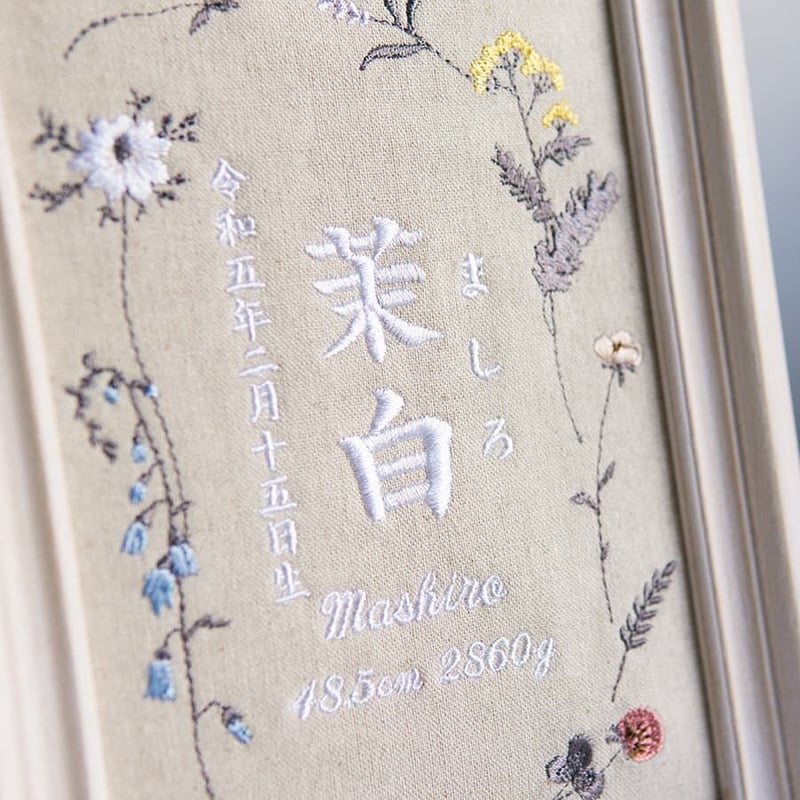 ましろ
茉白
令和五年二月十五日生
Mashiro
48.5cm 2860g